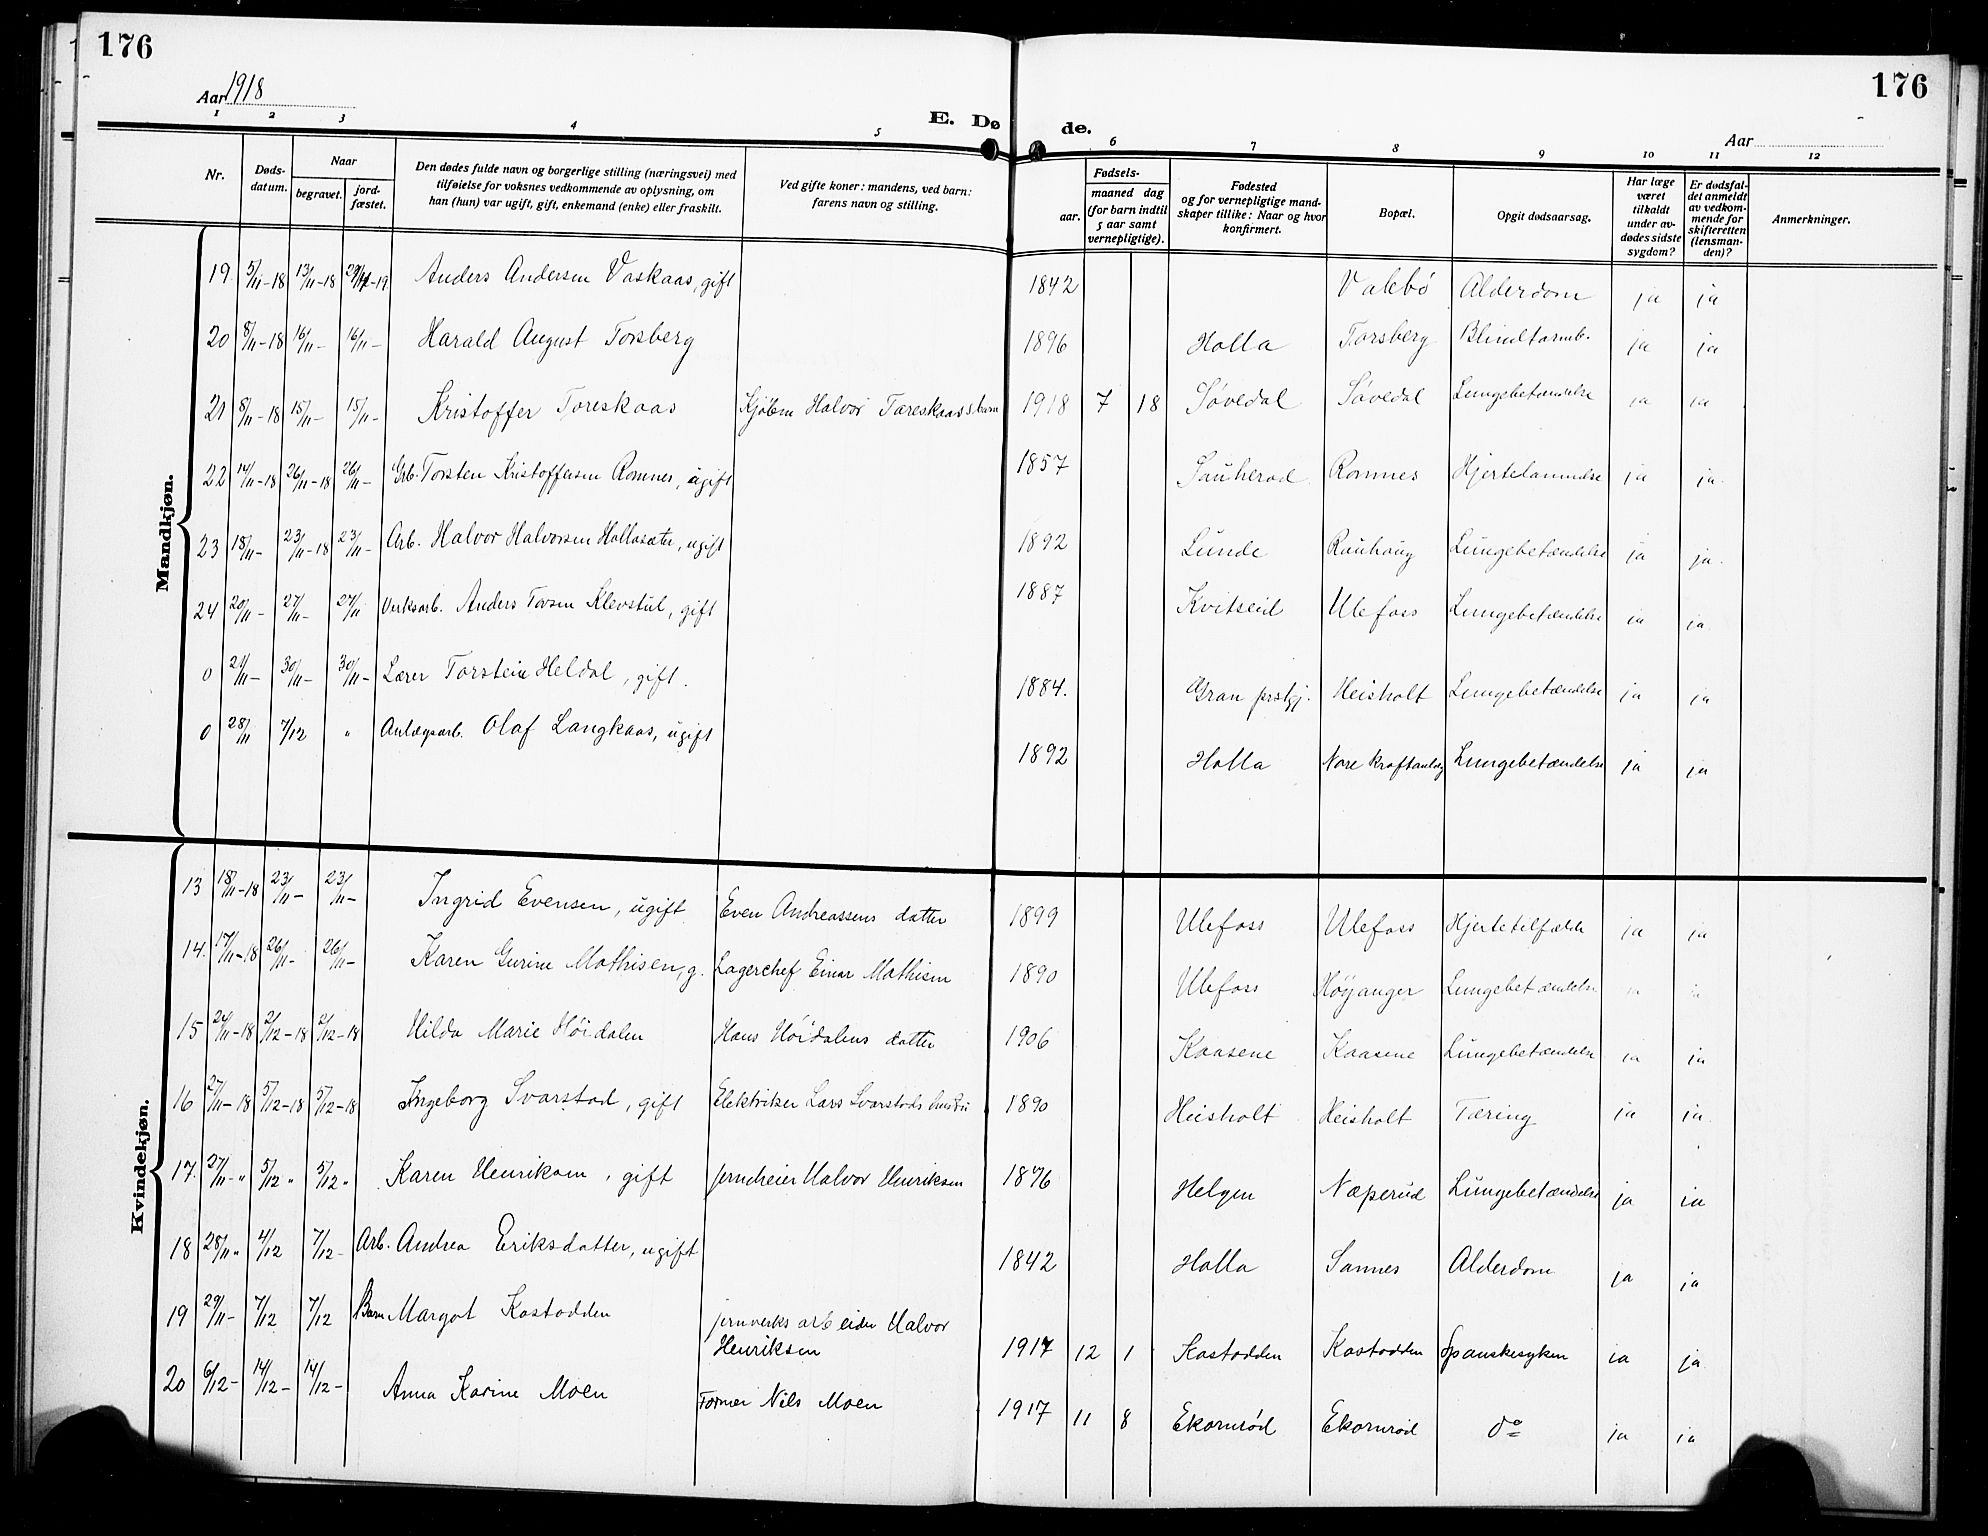 176
176
Aar 1918
E. Dø de.
Aar
1 2 3 4 5 6 7 8 9 10 11 12
Nr.
Døds-
datum.
Naar
begravet.
jord-
fæstet.
Den dødes fulde navn og borgerlige stilling (næringsvei) med
tilføielse for voksnes vedkommende av oplysning, om
han (hun) var ugift, gift, enkemand (enke) eller fraskilt.
Ved gifte koner: mandens, ved barn:
farens navn og stilling.
Fødsels-
aar.
maaned dag
(for barn indtil
5 aar samt
vernepligtige).
Fødested
og for vernepligtige mand-
skaper tillike: Naar og hvor
konfirmert.
Bopæl.
Opgit dødsaarsag.
Har læge
været
tilkaldt
under av-
dødes sidste
sygdom?
Er dødsfal-
det anmeldt
av vedkom-
mende for
skifteretten
(lensman-
den)?
Anmerkninger.
Mandkjøn.
19 5/11-18 13/11-18 Anders Andersen Vaskaas, gift 1842 Valebø Alderdom ja ja
20 8/11-18 16/11- 16/11- Harald August Torsberg 1896 Holla Torsberg Blindtarmb. ja ja
21 8/11-18 15/11- 15/11- Kristoffer Toreskaas Halvor Toreskaas s. barn 1918 7 18 Søvedal Søvedal Lungebetændelse ja ja
22 14/11-18 26/11-18 26/11- Arb. Torsten Kristoffersen Romnes, ugift 1857 Sauherad Romnes Hjertelammelse ja ja.
23 18/11- 23/11-18 23/11- Arb. Halvor Halvorsen Hollasæter, ugift 1892 Lunde Rauhaug Lungebetændelse ja ja.
24 20/11- 27/11- 27/11 Verksarb. Anders Tovsen Klevstul, gift 1887 Kvitseid Ulefoss Lungebetændelse ja ja.
0 21/11- 30/11- 30/11- Lærer Torstein Heldal, gift. 1884. Gran prstgj. Heisholt Lungebetændelse ja ja
0 28/11 7/12 " Anlægsarb. Olaf Langkaas, ugift 1892 Holla Nore kraftanlæg Lungebetændelse ja ja
Kvindekjøn.
13 18/11-18 23/11- 23/11- Ingrid Evensen, ugift Even Andreassens datter 1899 Ulefoss Ulefoss Hjertetilfælde ja ja
14. 17/11-18 26/11- 26/11- Karen Gurine Mathisen, g. Lagerchef Einar Mathisen 1890 Ulefoss Høyanger Lungebetændelse ja ja
15 24/11-18 2/12-18 2/12-18 Hilda Marie Høidalen Hans Høidalens datter 1906 Kaasene Kaasene Lungebetændelse ja ja
16 27/11-18 5/12-18 5/12-18 Ingeborg Svarstad, gift Elektriker Lars Svarstads hustru 1890 Heisholt Heisholt Tæring ja ja.
17. 27/11-" 5/12 " 5/12 " Karen Henriksen, gift jerndreier Halvor Henriksen 1876 Helgen Næperud Lungebetændelse ja ja
18 28/11 " 4/12 7/12- Arb. Andrea Eriksdatter, ugift 1842 Holla Sannes Alderdom ja ja
19 29/11- 7/12 7/12 Barn Margot Kastodden jernverksarbeider Halvor
Henriksen 1917 12 1 Kastodden Kastodden Spanskesyken ja ja
20 6/12- 14/12- 14/12- Anna Karine Moen Former Nils Moen 1917 11 8 Ekornrød Ekornrød do ja ja